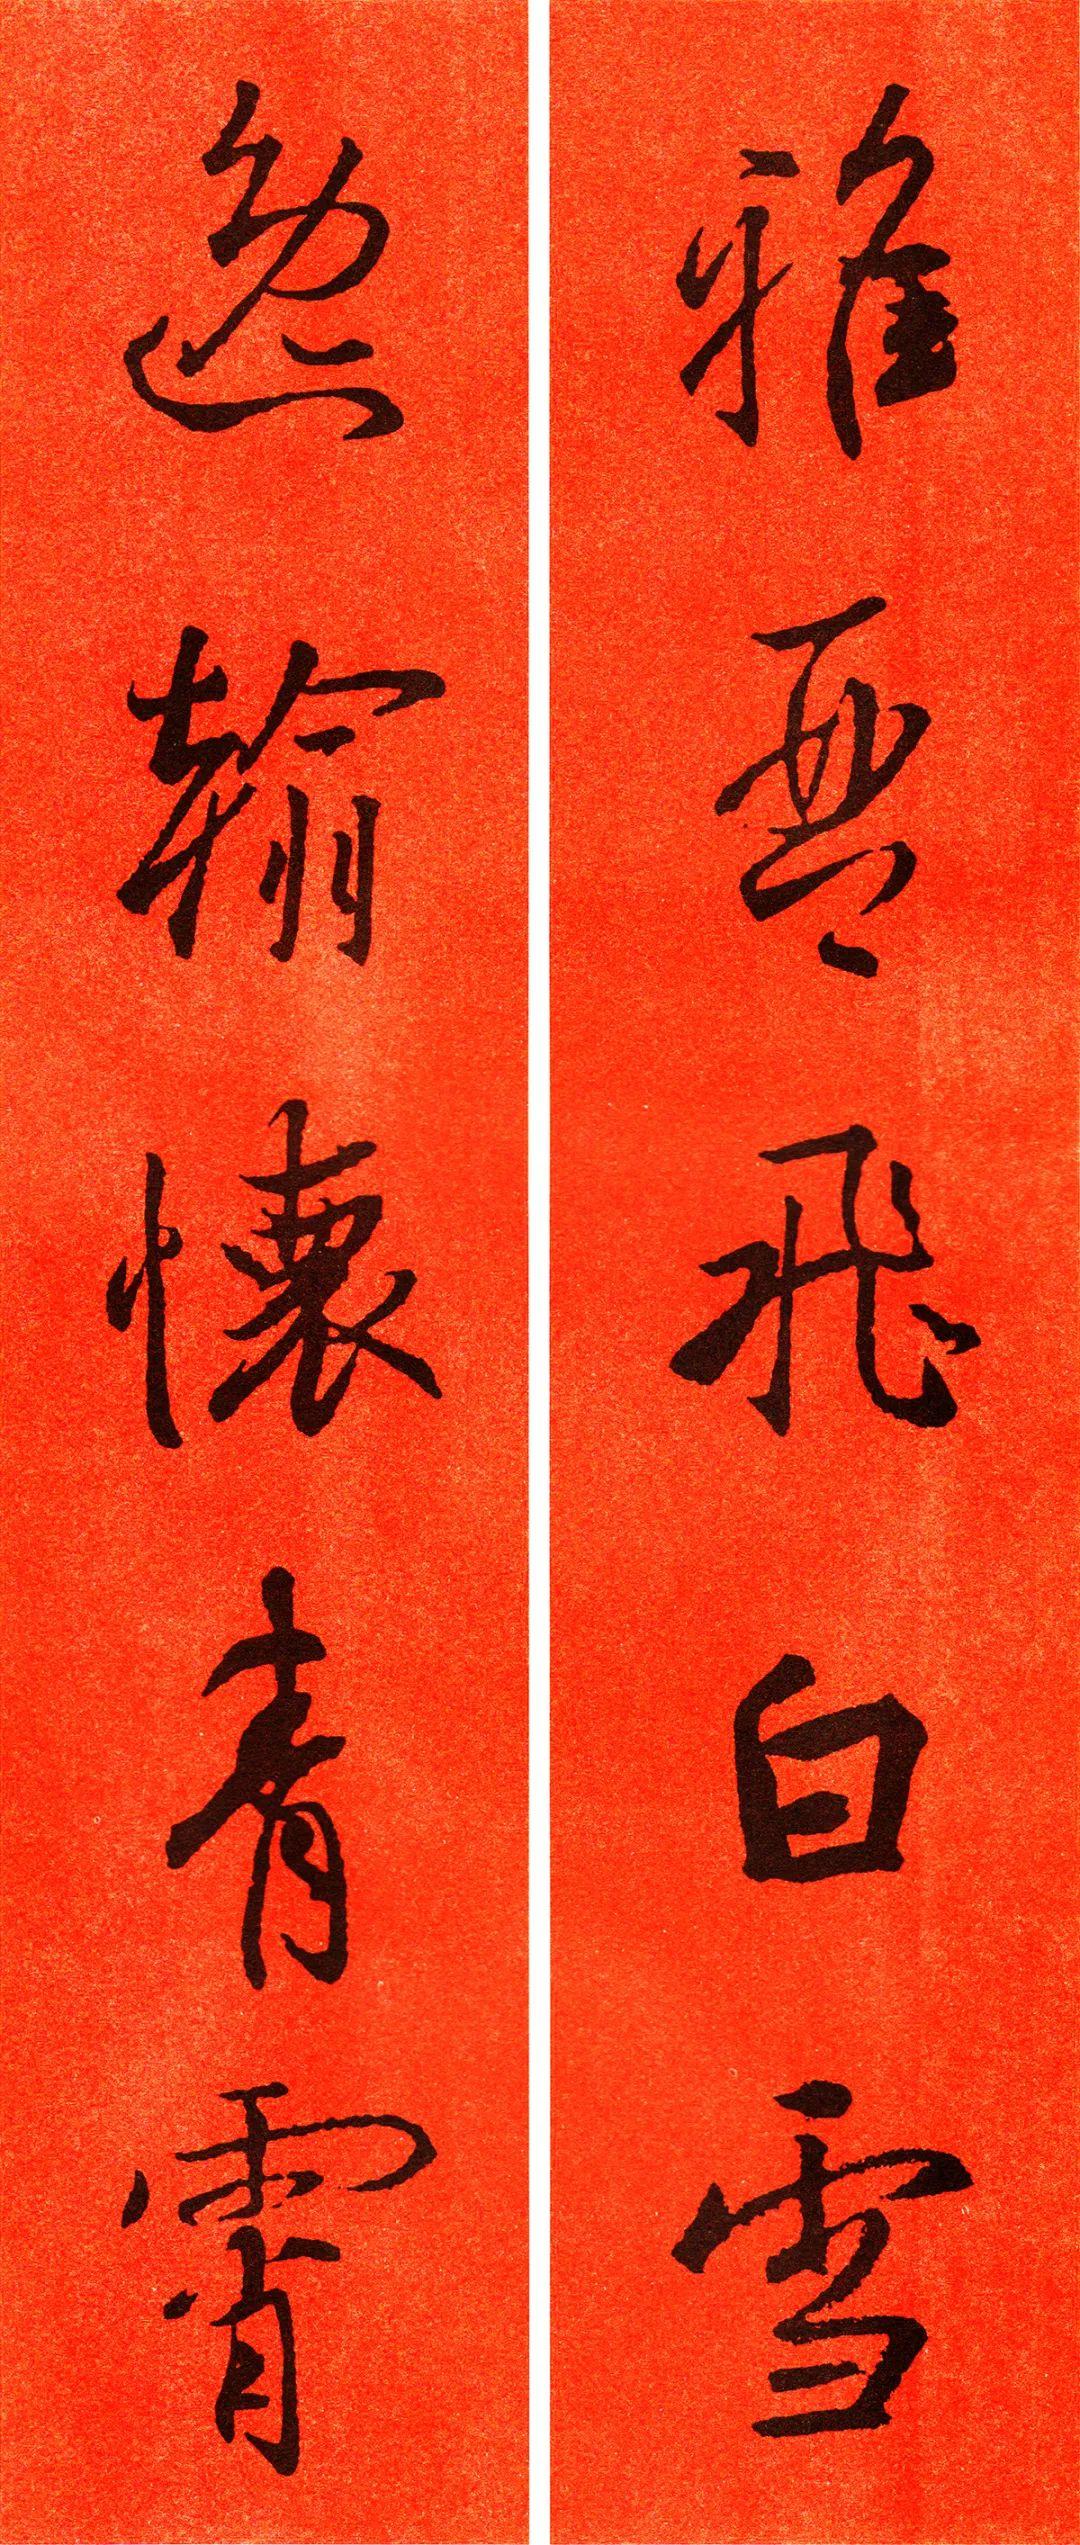 雅琴飛白雪
逸翰懷青霄